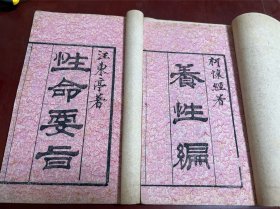 柯懷經著
養性編
汪東亭著
性命要旨